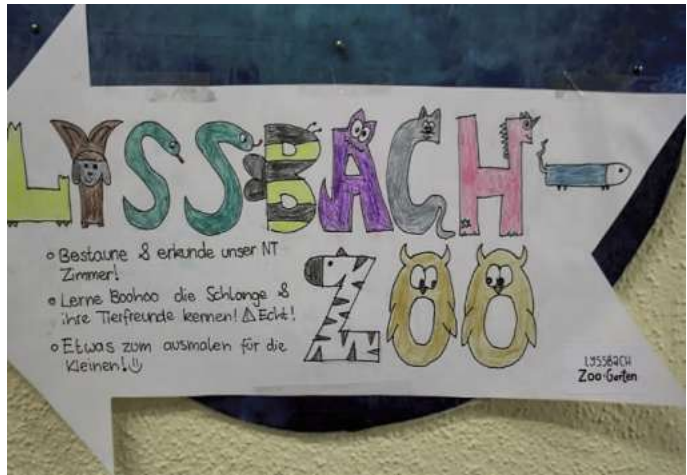 LYSSBACH-
ZOO
• Bestaune & erkunde unser NT
Zimmer!
• Lerne Boohoo die Schlange &
ihre Tierfreunde kennen! ⚠Echt!
• Etwas zum ausmalen für die
Kleinen!☺
LYSSBACH
Zoo-Garten